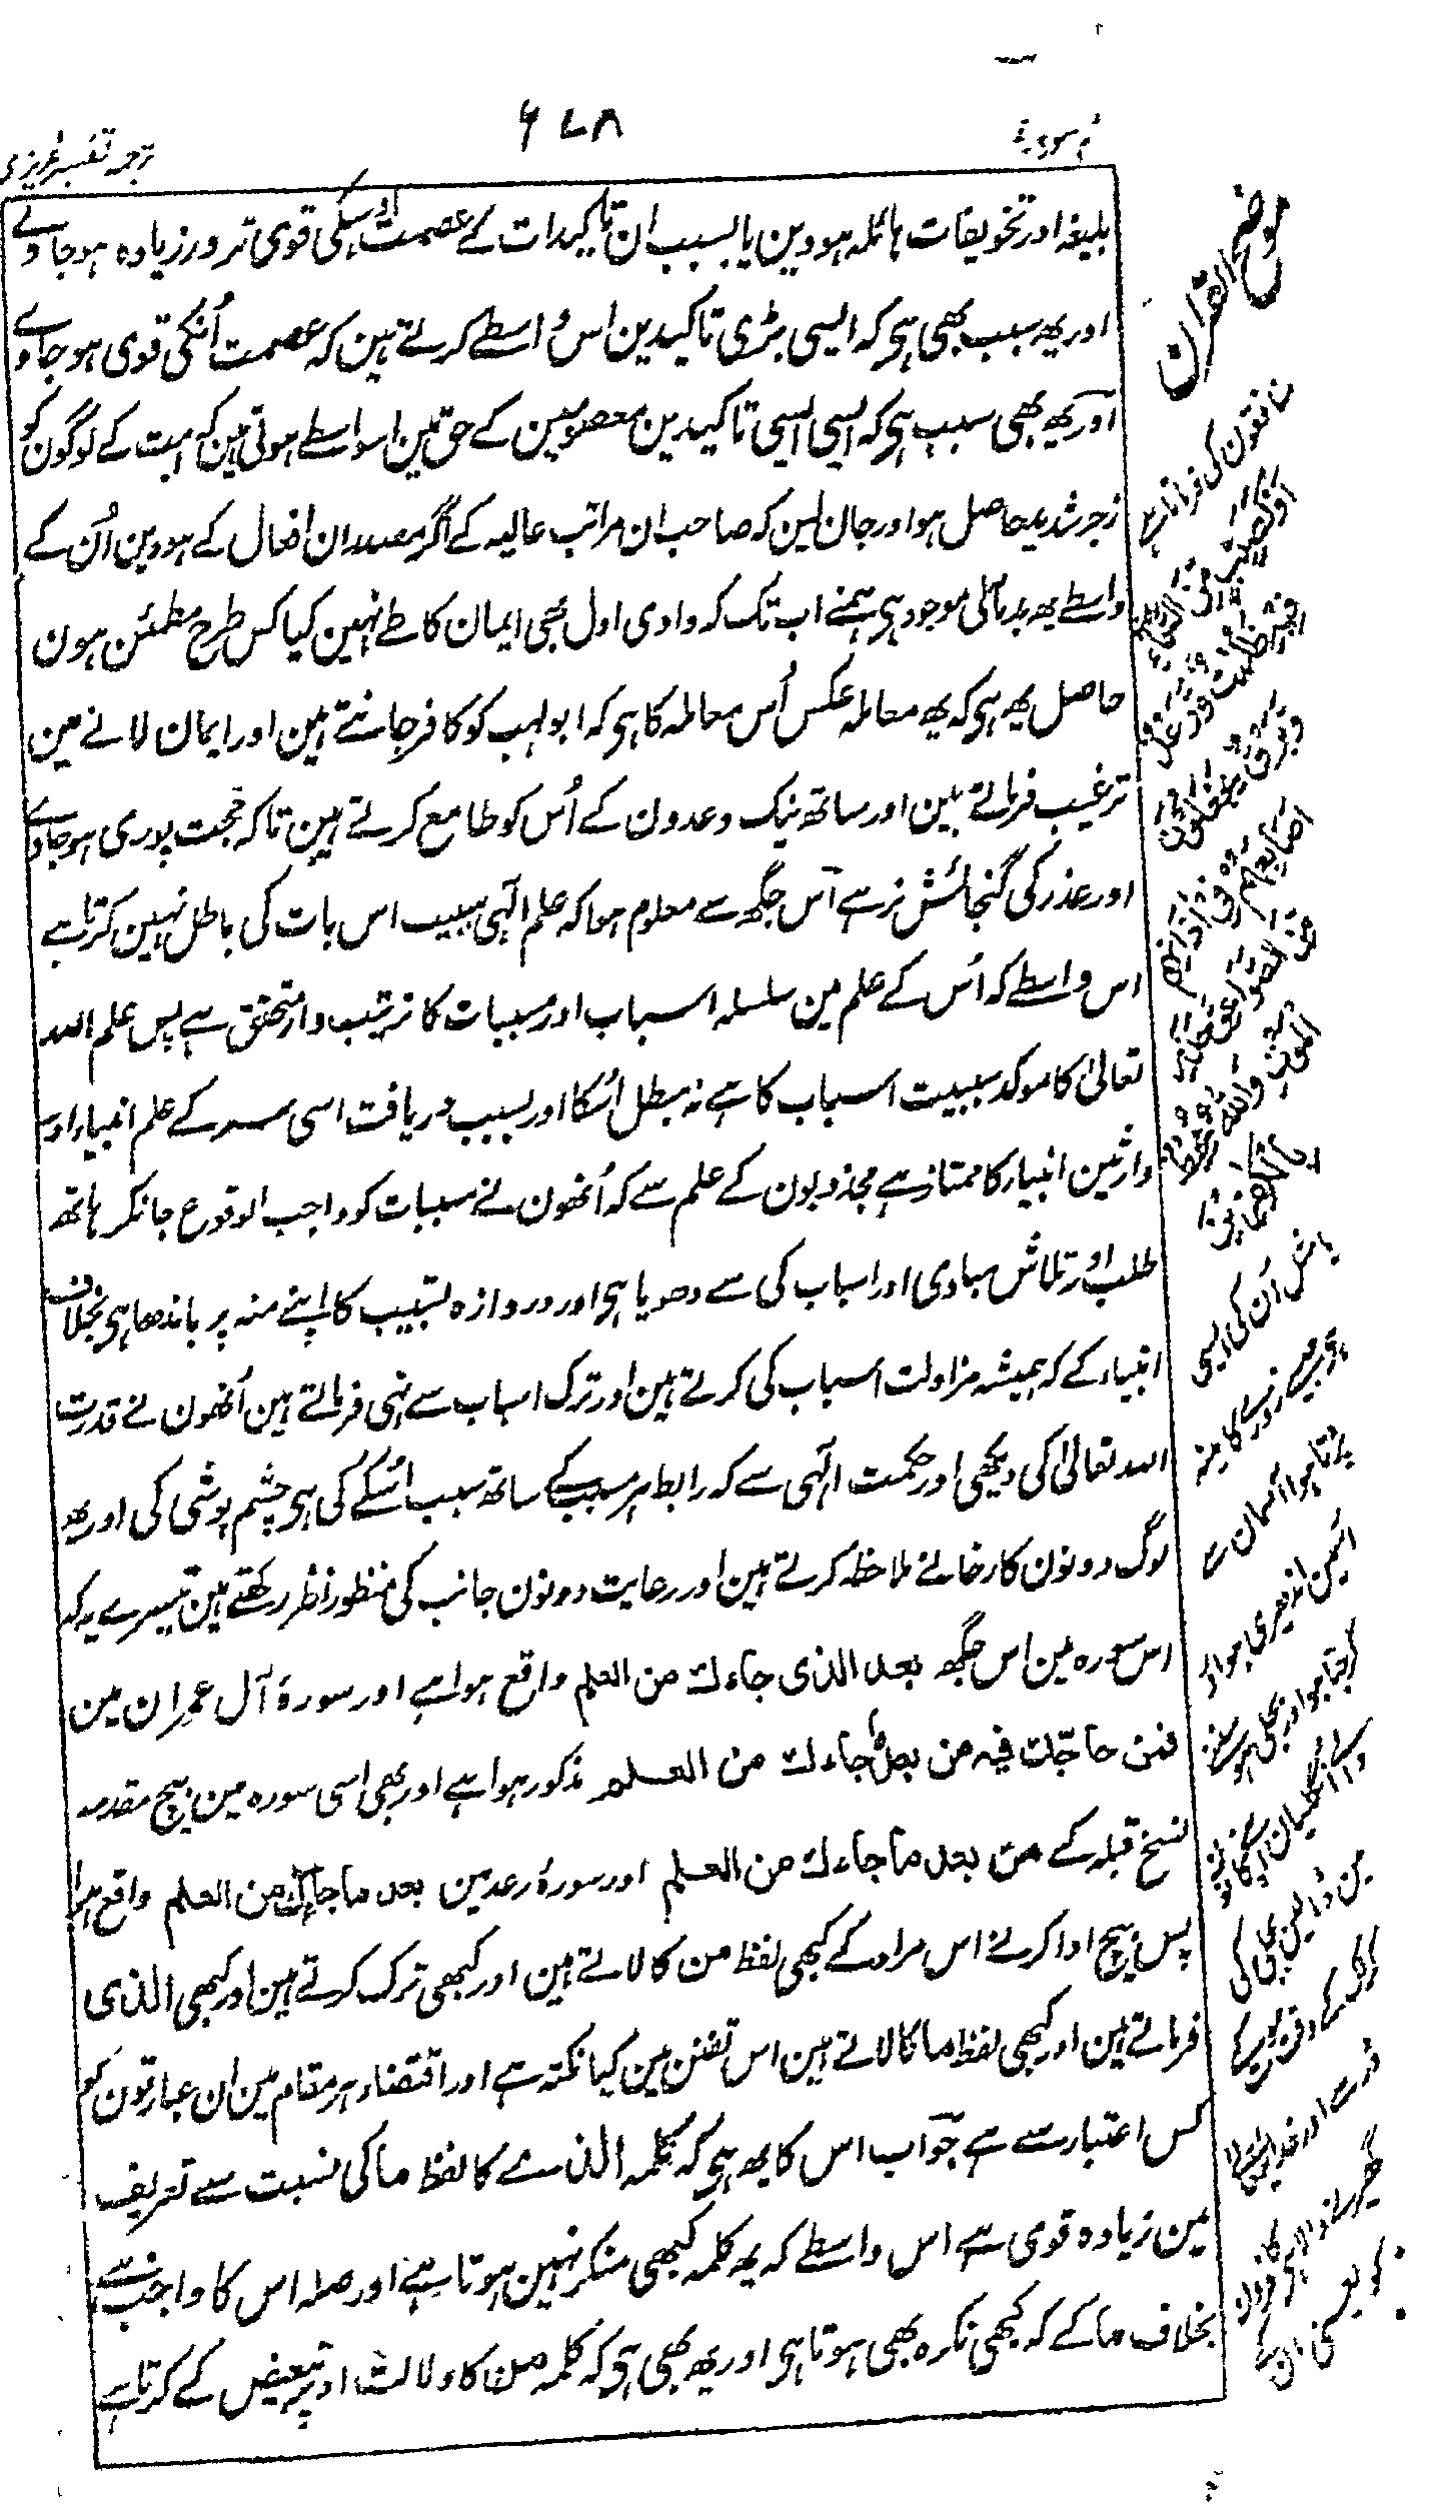 ترجمہ تفسیر عزیزی
۶۷۸
سورہ
بلیغہ اور تخویفات ہائلہ ہووین یا بسبب ان تاکیدات کے عصمت اوسکی قوی تر ورزیادہ ہو جاوے
اور یھہ سبب بھی ہی کہ ایسی بڑی تاکیدین اس واسطے کرتے ہین کہ عصمت اُنکی قوی ہو جاوے
اور یھہ بھی سبب ہی کہ ایسی ایسی تاکیدین معصومین کے حق مین اسواسطے ہوتی ہین کہ امت کے لوگون کو
زجر شدید حاصل ہو اور جان لین کہ صاحب ان مراتب عالیہ کے اگر مصدر ان افعال کے ہووین اُن کے
واسطے یھہ بدمآلی موجود ہی ہمنے اب تک کہ وادی اول بھی ایمان کا طے نہین کیا کس طرح مطمئن ہون
حاصل یھہ ہی کہ یھہ معاملہ عکس اُس معاملہ کا ہی کہ ابو لہب کو کافر جانتے ہین اور ایمان لانے مین
ترغیب فرماتے ہین اور ساتھ نیک وعدون کے اُس کو طامع کرتے ہین تاکہ حجت پوری ہو جاوے
اور عذر کی گنجائش نرہے اس جگھہ سے معلوم ہوا کہ علم الٰہی سببیت اس بات کی باطل نہین کرتا ہے
اس واسطے کہ اُس کے علم مین سلسلہ اسباب اور مسببات کا ترتیب وار متحقق ہے پس علم اللہ
تعالیٰ کا موکد سببیت اسباب کا ہے نہ مبطل اُسکا اور بسبب دریافت اسی سر کے علم انبیاء اور
وارثین انبیاء کا ممتاز ہے مجذوبون کے علم سے کہ اُنھون نے مسببات کو واجب الوقوع جانکر ہاتھ
طلب اور تلاش مبادی اور اسباب کی سے دھویا ہی اور دروازہ تسبیب کا اپنے منہ پر باندھا ہی بخلاف
انبیاء کے کہ ہمیشہ مزاولت اسباب کی کرتے ہین اور ترک اسباب سے نہی فرماتے ہین اُنھون نے قدرت
اللہ تعالیٰ کی دیکھی اور حکمت الٰہی سے کہ رابط ہر مسبب کے ساتھ سبب اُسکے کی ہی چشم پوشی کی اور یھہ
لوگ دونون کارخانے ملاحظہ کرتے ہین اور رعایت دونون جانب کی منظور نظر رکھتے ہین تیسرے یہ کہ
اس سورہ مین اس جگھہ بعد الذی جاءك من العلم واقع ہوا ہے اور سورۂ آل عمران مین
فمن حاجك فیہ من بعد ما جاءك من العلم مذکور ہوا ہے اور بھی اسی سورہ مین بیچ مقدمہ
نسخ قبلہ کے من بعد ما جاءك من العلم اور سورۂ رعد مین بعد ما جاءك من العلم واقع ہوا
پس بیچ ادا کرنے اس مراد کے کبھی لفظ من کا لاتے ہین اور کبھی ترک کرتے ہین اور کبھی الذی
فرماتے ہین اور کبھی لفظ ما کا لاتے ہین اس تفنن مین کیا نکتہ ہے اور اقتضاء ہر مقام مین ان عبارتون کو
کس اعتبار سے ہے جواب اس کا یھہ ہی کہ کلمہ الذی کا لفظ ما کی نسبت سے تعریف
مین زیادہ قوی ہے اس واسطے کہ یھہ کلمہ کبھی منکر نہین ہوتا ہے اور صلہ اس کا واجب ہے
بخلاف ما کے کہ کبھی نکرہ بھی ہوتا ہی اور یھہ بھی ہی کہ کلمہ من کا دلالت اوپر تبعیض کے کرتا ہے
موضح القرآن
اوکصیب من السماء
فیہ ظلمت ورعد
وبرق یجعلون
اصابعهم فی اذانهم
من الصواعق حذر
الموت واللہ محیط
بالکفرین
یا مثل اُن کی ایسی
جیسے زور کا مینہ
پڑتا ہوا آسمان سے
اسمین اندھیری ہو اور